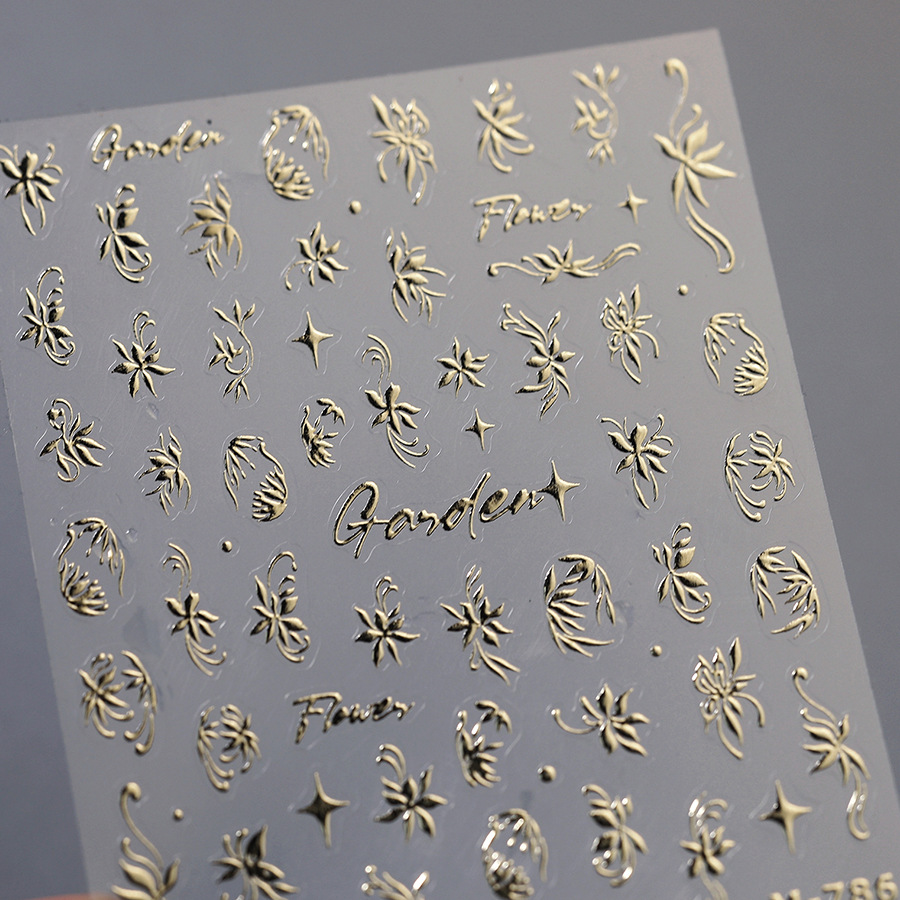 Garden
Flower
Garden
Flower
-786